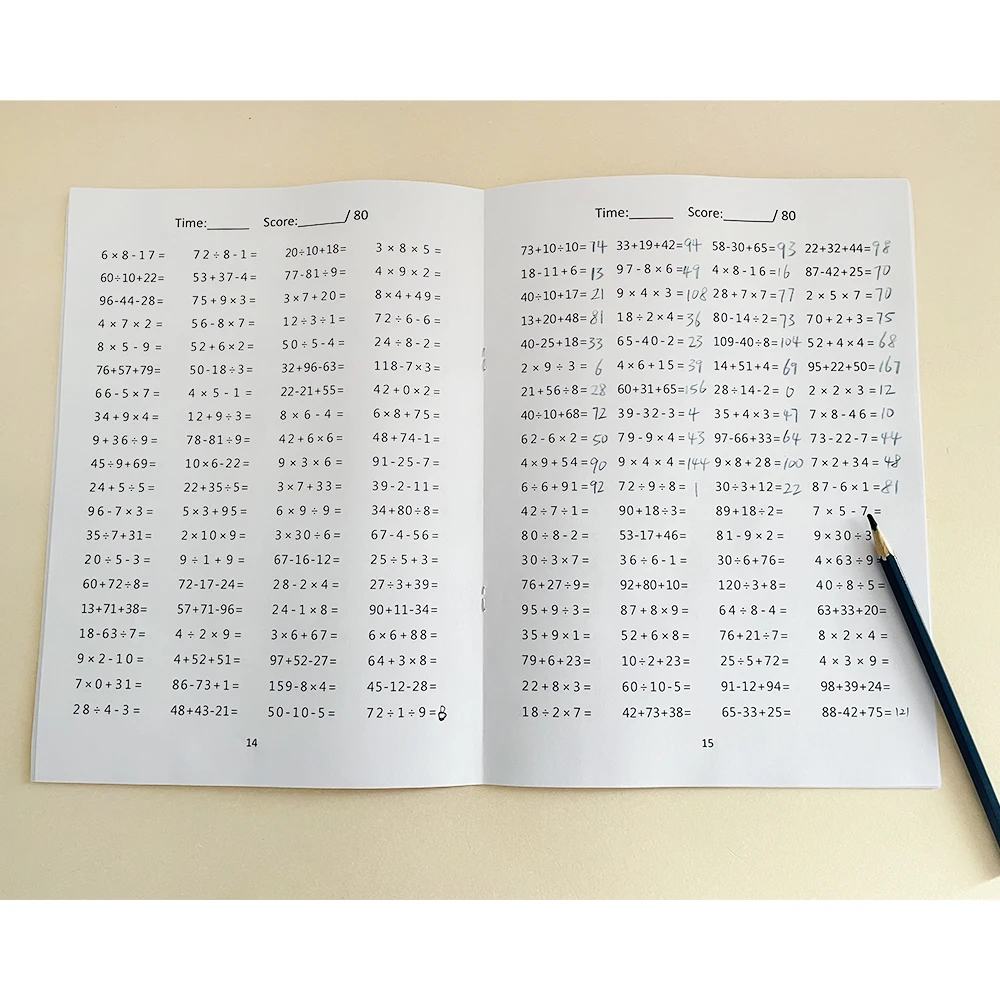 Time:______ Score:______/ 80
6×8-17= 72÷8-1= 20÷10+18= 3×8×5=
60÷10+22= 53+37-4= 77-81÷9= 4×9×2=
96-44-28= 75+9×3= 3×7+20= 8×4+49=
4×7×2= 56-8×7= 12÷3÷1= 72÷6-6=
8×5-9= 52+6×2= 50÷5-4= 24÷8-2=
76+57+79= 50-18÷3= 32+96-63= 118-7×3=
66-5×7= 4×5-1= 22-21+55= 42+0×2=
34+9×4= 12+9÷3= 8×6-4= 6×8+75=
9+36÷9= 78-81÷9= 42+6×6= 48+74-1=
45÷9+69= 10×6-22= 9×3×6= 91-25-7=
24+5÷5= 22+35÷5= 3×7+33= 39-2-11=
96-7×3= 5×3+95= 6×9÷9= 34+80÷8=
35÷7+31= 2×10×9= 3×30÷6= 67-4-56=
20÷5-3= 9÷1+9= 67-16-12= 25÷5+3=
60+72÷8= 72-17-24= 28-2×4= 27÷3+39=
13+71+38= 57+71-96= 24-1×8= 90+11-34=
18-63÷7= 4÷2×9= 3×6+67= 6×6+88=
9×2-10= 4+52+51= 97+52-27= 64+3×8=
7×0+31= 86-73+1= 159-8×4= 45-12-28=
28÷4-3= 48+43-21= 50-10-5= 72÷1÷9=8
14
Time:______ Score:______/ 80
73+10÷10=74 33+19+42=94 58-30+65=93 22+32+44=98
18-11+6=13 97-8×6=49 4×8-16=16 87-42+25=70
40÷10+17=21 9×4×3=108 28+7×7=77 2×5×7=70
13+20+48=81 18÷2×4=36 80-14÷2=73 70+2+3=75
40-25+18=33 65-40-2=23 109-40÷8=104 52+4×4=68
2×9÷3=6 4×6+15=39 14+51+4=69 95+22+50=167
21+56÷8=28 60+31+65=156 28÷14-2=0 2×2×3=12
40÷10+68=72 39-32-3=4 35+4×3=47 7×8-46=10
62-6×2=50 79-9×4=43 97-66+33=64 73-22-7=44
4×9+54=90 9×4×4=144 9×8+28=100 7×2+34=48
6÷6+91=92 72÷9÷8=1 30÷3+12=22 87-6×1=81
42÷7÷1= 90+18÷3= 89+18÷2= 7×5-7=
80÷8-2= 53-17+46= 81-9×2= 9×30÷3
30÷3×7= 36÷6-1= 30÷6+76= 4×63÷9
76+27÷9= 92+80+10= 120÷3+8= 40÷8÷5=
95+9÷3= 87+8×9= 64÷8-4= 63+33+20=
35+9×1= 52+6×8= 76+21÷7= 8×2×4=
79+6+23= 10÷2+23= 25÷5+72= 4×3×9=
22+8×3= 60÷10-5= 91-12+94= 98+39+24=
18÷2×7= 42+73+38= 65-33+25= 88-42+75=121
15